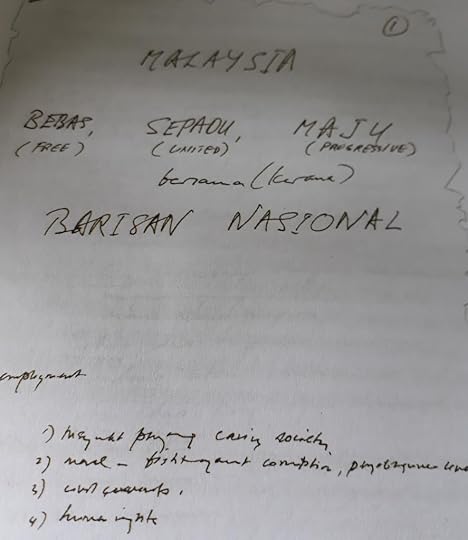 1
MALAYSIA
BEBAS, SEPADU, MAJU
(FREE) (UNITED) (PROGRESSIVE)
bersama (Kerana)
BARISAN NASIONAL
employment
1) caring society
2) moral – fight against corruption,
3) civil servants.
4) human rights